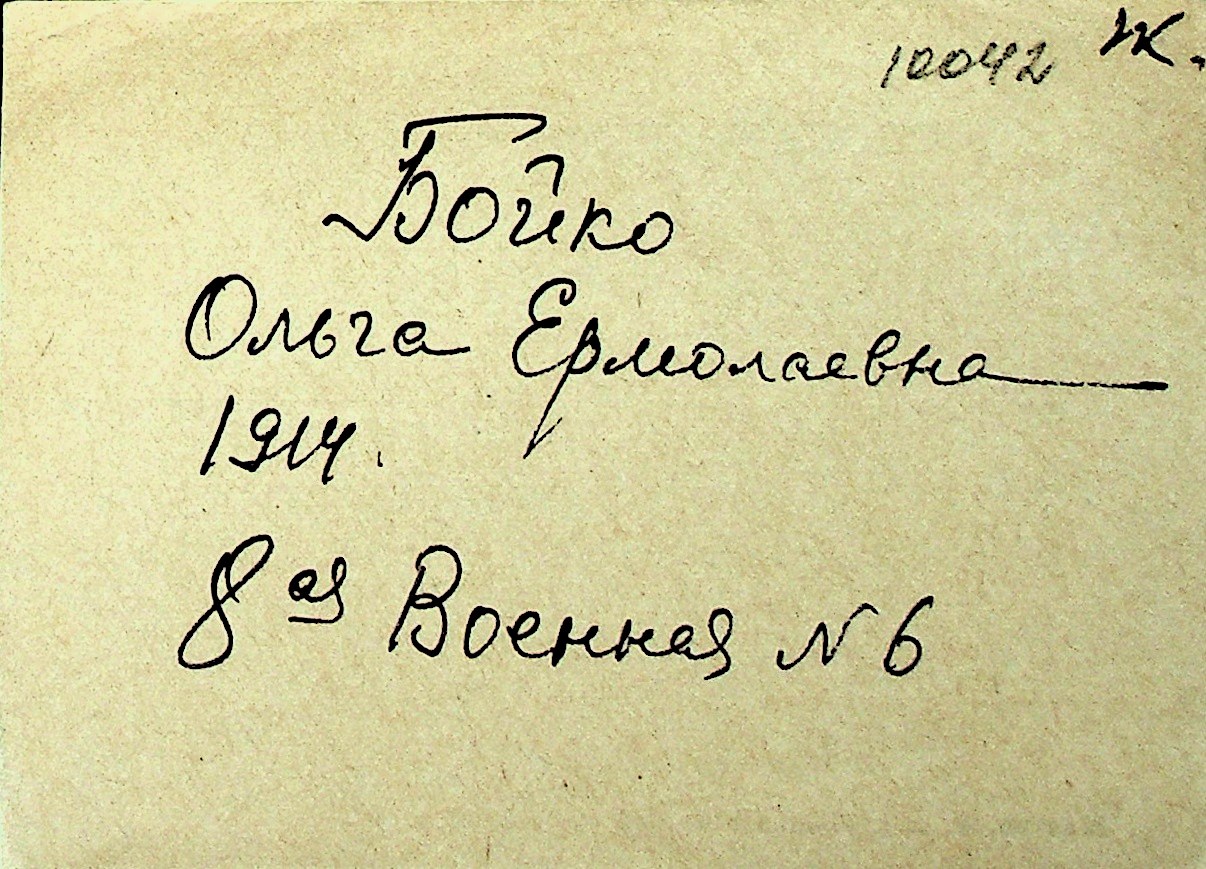 10042 Ж.
Бойко
Ольга Ермолаевна
1914.
8ая Военная N 6